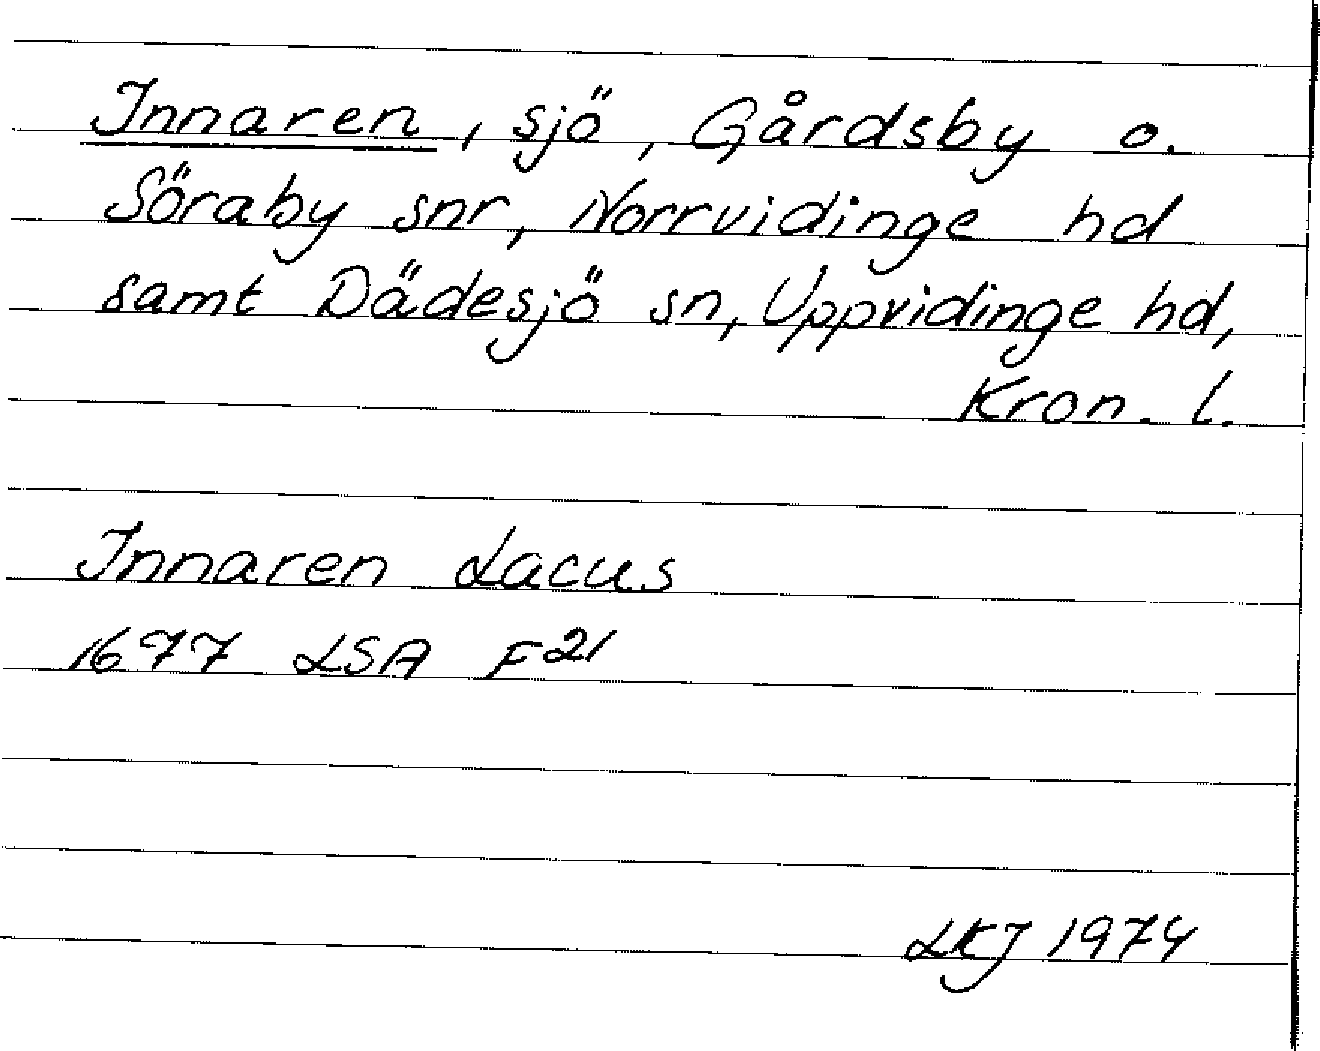 Innaren, sjö, Gårdsby o.
Söraby snr, Norrvidinge hd
samt Dädesjö sn, Uppvidinge hd,
Kron. l.
Innaren Lacus
1677 LSA F21
LKJ 1974